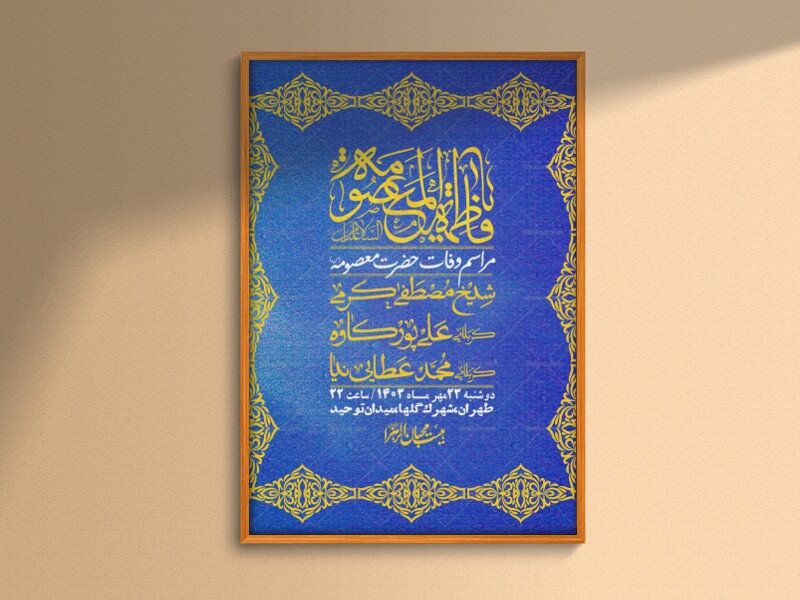 یا فاطمة المعصومة
السلام علیک
مراسم وفات حضرت معصومه
شیخ مصطفی کرمی
کربلایی علی پورکاوه
کربلایی محمد عطایی نیا
دوشنبه ۲۳ مهر ماه ۱۴۰۳ / ساعت ۲۲
طهران، شهرک گلها، میدان توحید
بیت محبان الزهرا